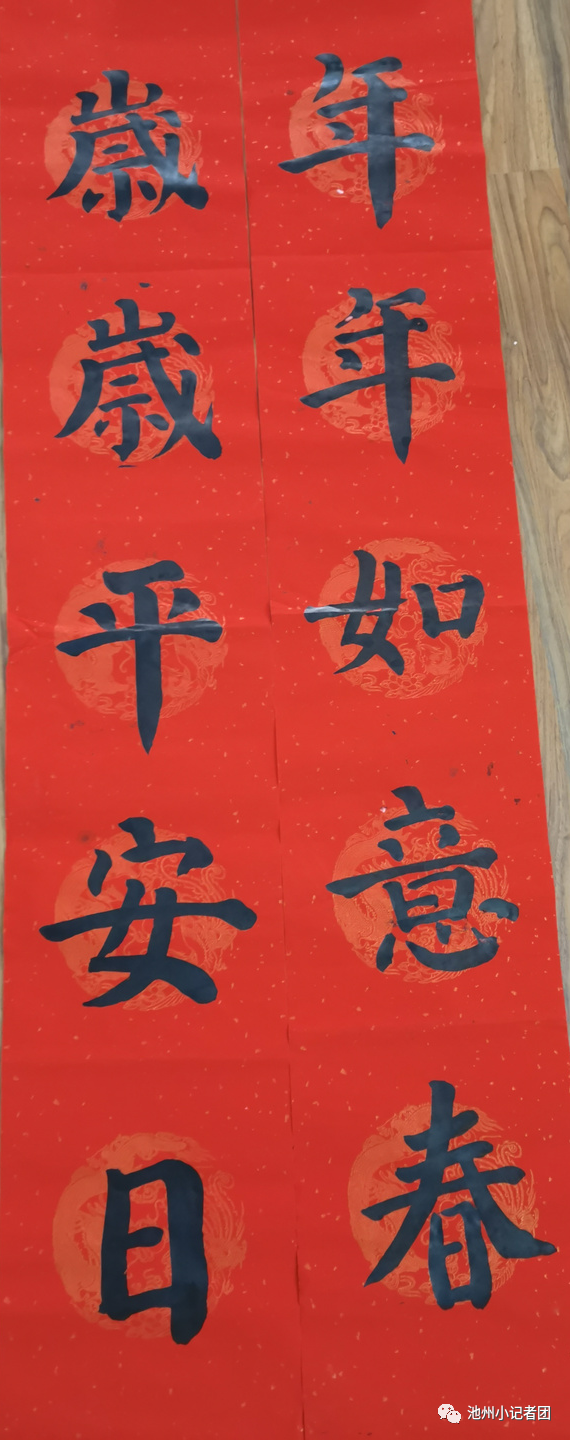 年年如意春
歲歲平安日
池州小记者团